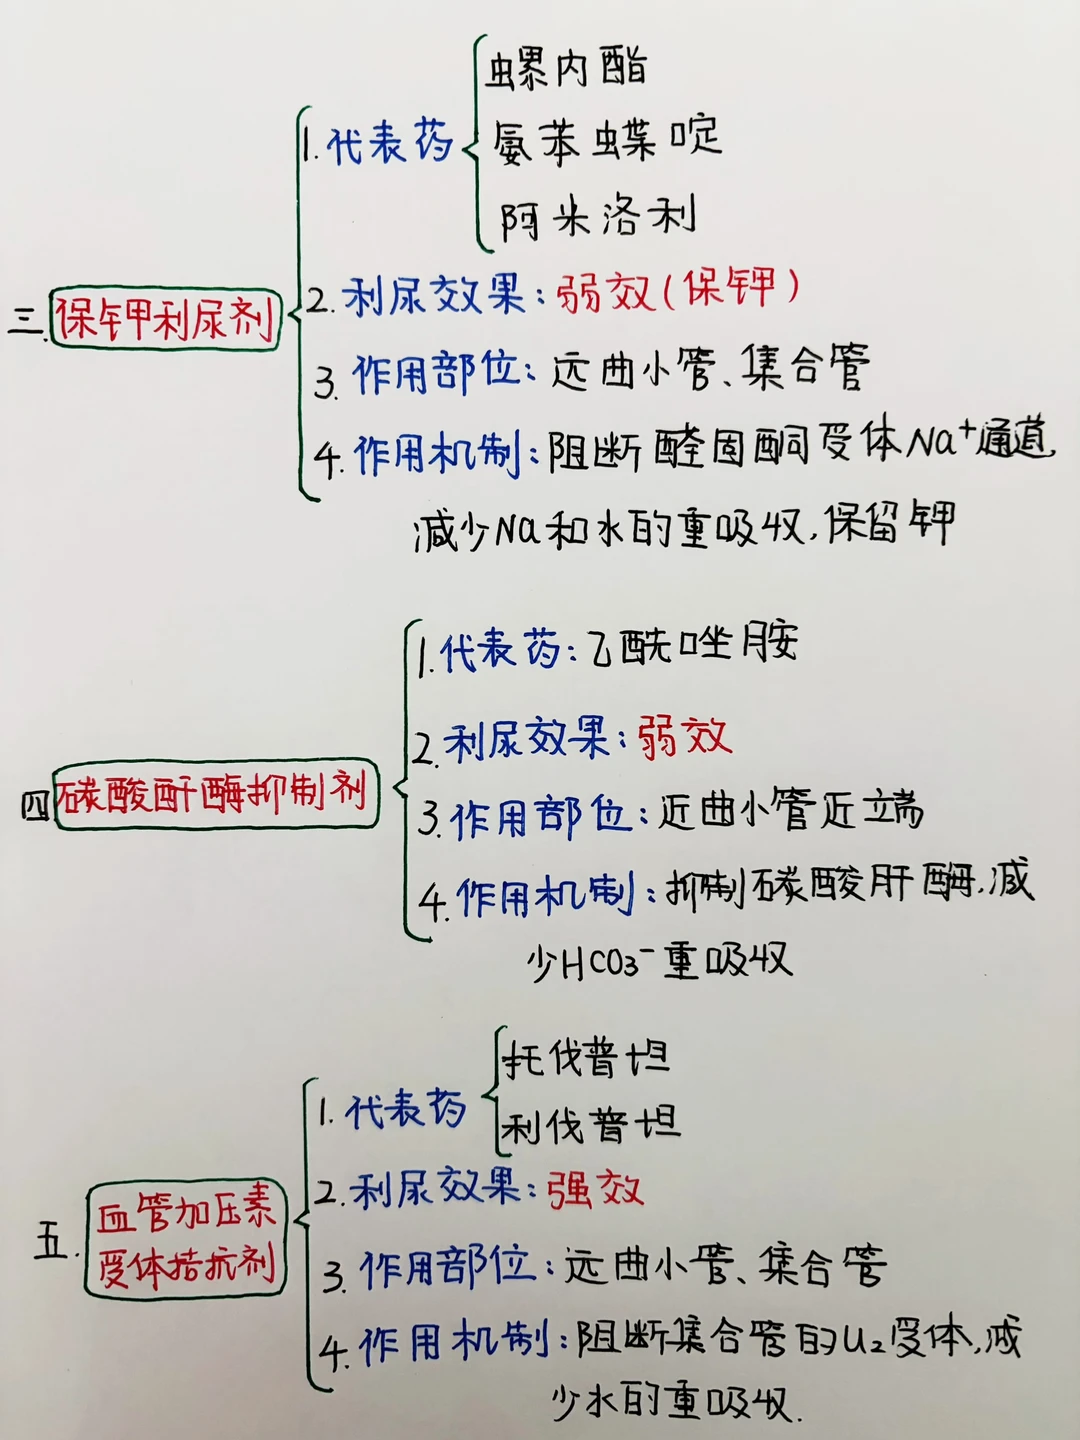 三. 保钾利尿剂
1. 代表药
螺内酯
氨苯蝶啶
阿米洛利
2. 利尿效果: 弱效(保钾)
3. 作用部位: 远曲小管、集合管
4. 作用机制: 阻断醛固酮受体Na⁺通道,
减少Na和水的重吸收, 保留钾
四 碳酸酐酶抑制剂
1. 代表药: 乙酰唑胺
2. 利尿效果: 弱效
3. 作用部位: 近曲小管近端
4. 作用机制: 抑制碳酸肝酶, 减
少HCO3⁻重吸收
五. 血管加压素
受体拮抗剂
1. 代表药
托伐普坦
利伐普坦
2. 利尿效果: 强效
3. 作用部位: 远曲小管、集合管
4. 作用机制: 阻断集合管的U₂受体, 减
少水的重吸收.